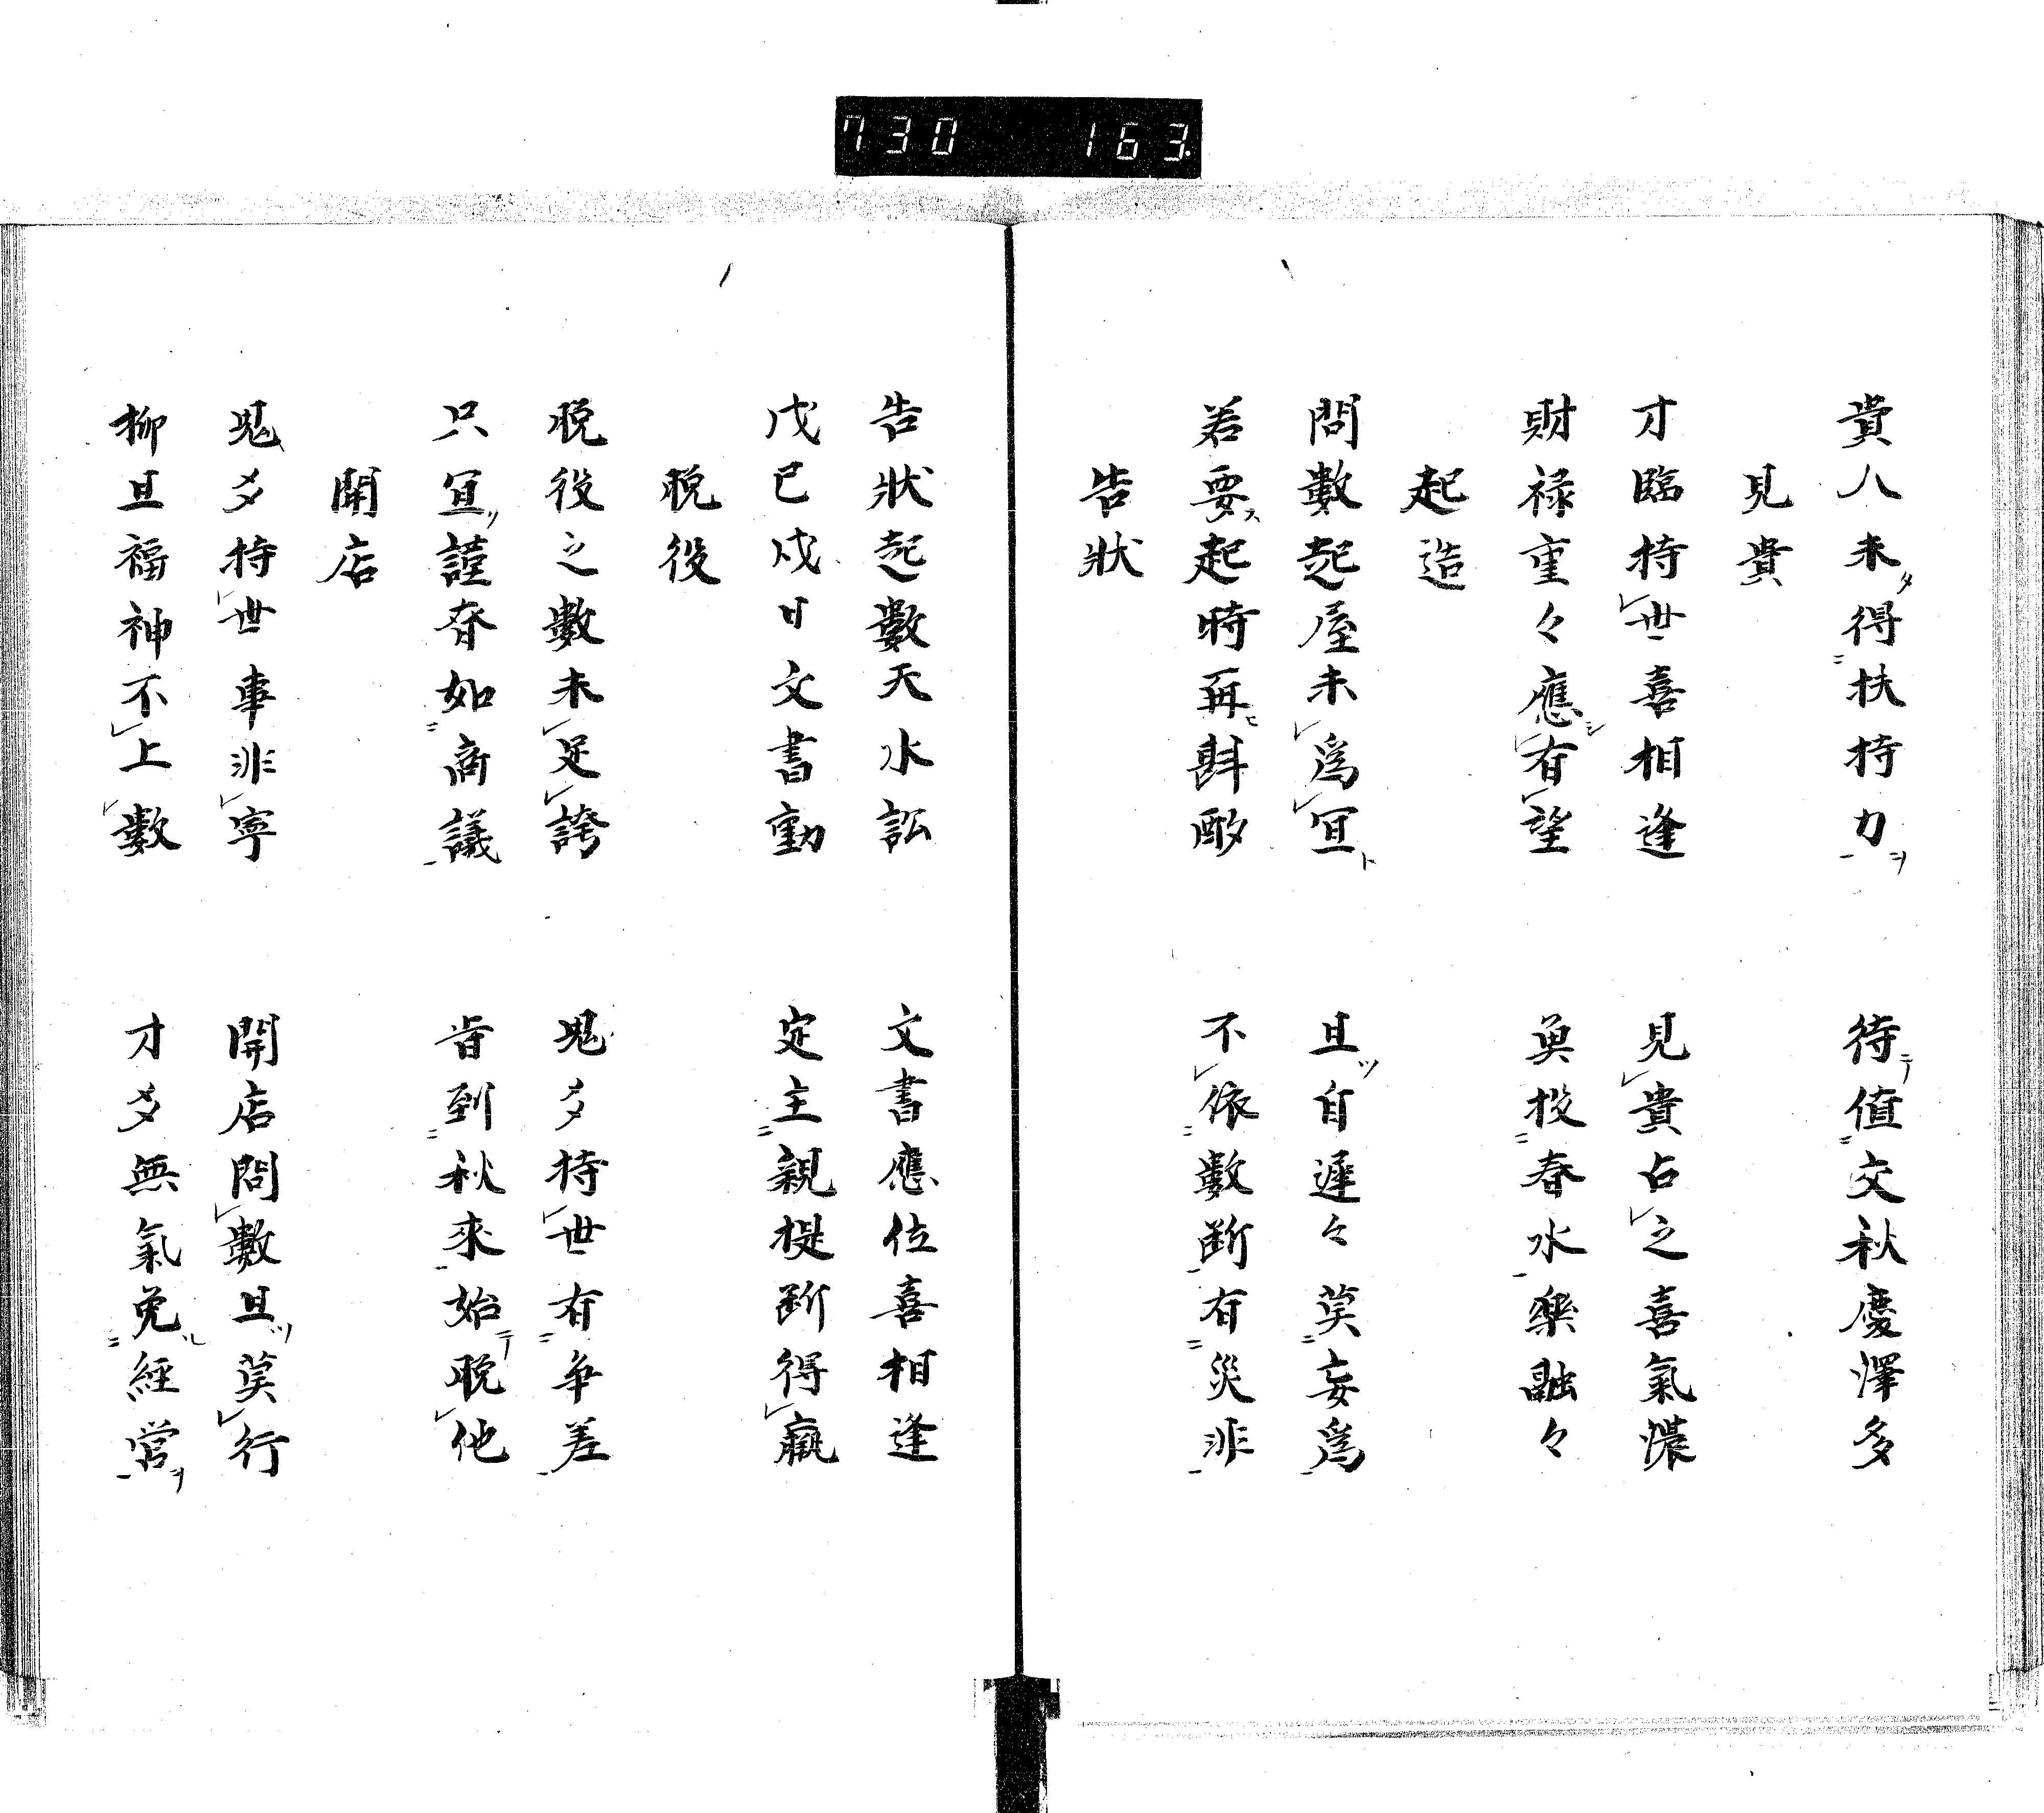 730 163
貴人未得扶持力 待値交秋慶澤多
見貴
才臨持世喜相逢 見貴占之喜氣濃
財禄重々應有望 奐投春水樂融々
起造
問數起屋未爲宜 且自遲々莫妄爲
若要起時再斟酌 不依數斷有災非
告狀
告狀起數天水訟 文書應位喜相逢
戊已戌日文書動 定主親提斷得贏
脱役
脱役之數未足誇 鬼多持世有争差
只宜謹脊如商議 皆到秋來始脱他
開店
鬼多持世事非寧 開店問數且莫行
柳且福神不上數 才多無氣免經営